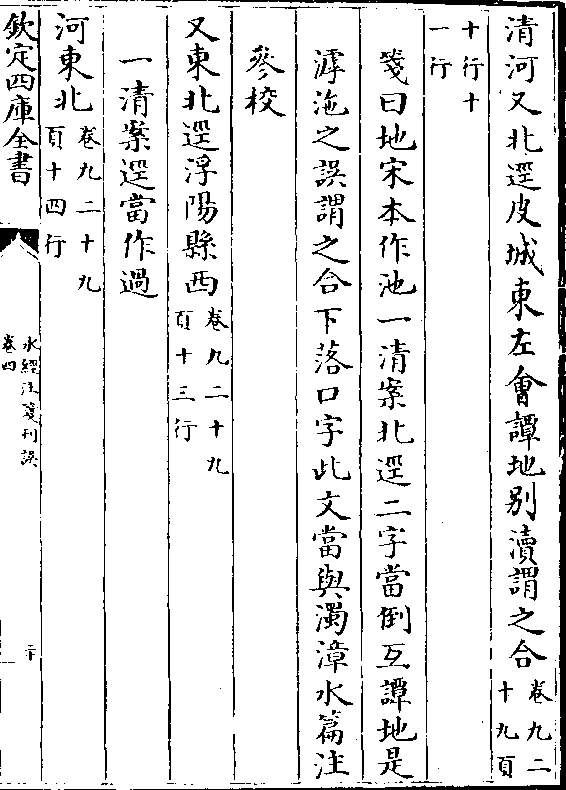 清河又北逕皮城東左會譚地别瀆謂之合卷九二十九頁
十行十一行
箋曰地宋本作池一清案北逕二字當倒互譚地是
滹沲之誤謂之合下落口字此文當與濁漳水篇注
參校
又東北逕浮陽縣西卷九二十九頁十三行
一清案逕當作過
河東北卷九二十九頁十四行
欽定四庫全書
水經注箋刊誤
卷四
二十